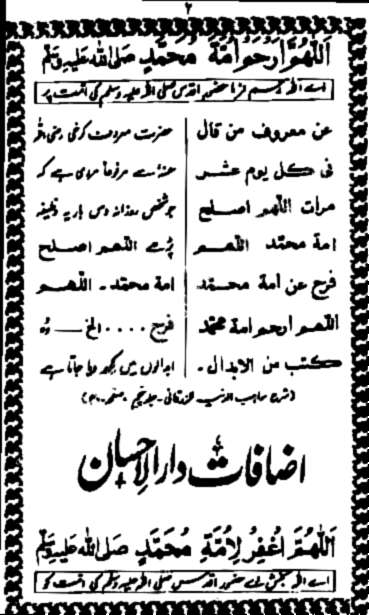 ۲
اَللّٰهُمَّ ارْحَمْ اُمَّةَ مُحَمَّدٍ صلی اللہ علیہ وسلم
اے اللہ رحم فرما حضور اقدس صلی اللہ علیہ وسلم کی امت پر
عن معروف من قال
فی كل يوم عشر
مرات اللهم اصلح
امة محمد اللهم
فرج عن امة محمد
اللهم ارحم امة محمد
كتب من الابدال ۔
حضرت معروف کرخی رضی اللہ
عنہٗ سے مرفوعاً مروی ہے کہ
جو شخص روزانہ دس بار یہ وظیفہ
پڑھے اللهم اصلح
امة محمد ۔ اللهم
فرج .... الخ — وہ
ابدالوں میں لکھ دیا جاتا ہے
اضافات دار الاحسان
اَللّٰهُمَّ اغْفِرْ لِاُمَّةِ مُحَمَّدٍ صلی اللہ علیہ وسلم
اے اللہ بخش دے حضور اقدس صلی اللہ علیہ وسلم کی امت کو